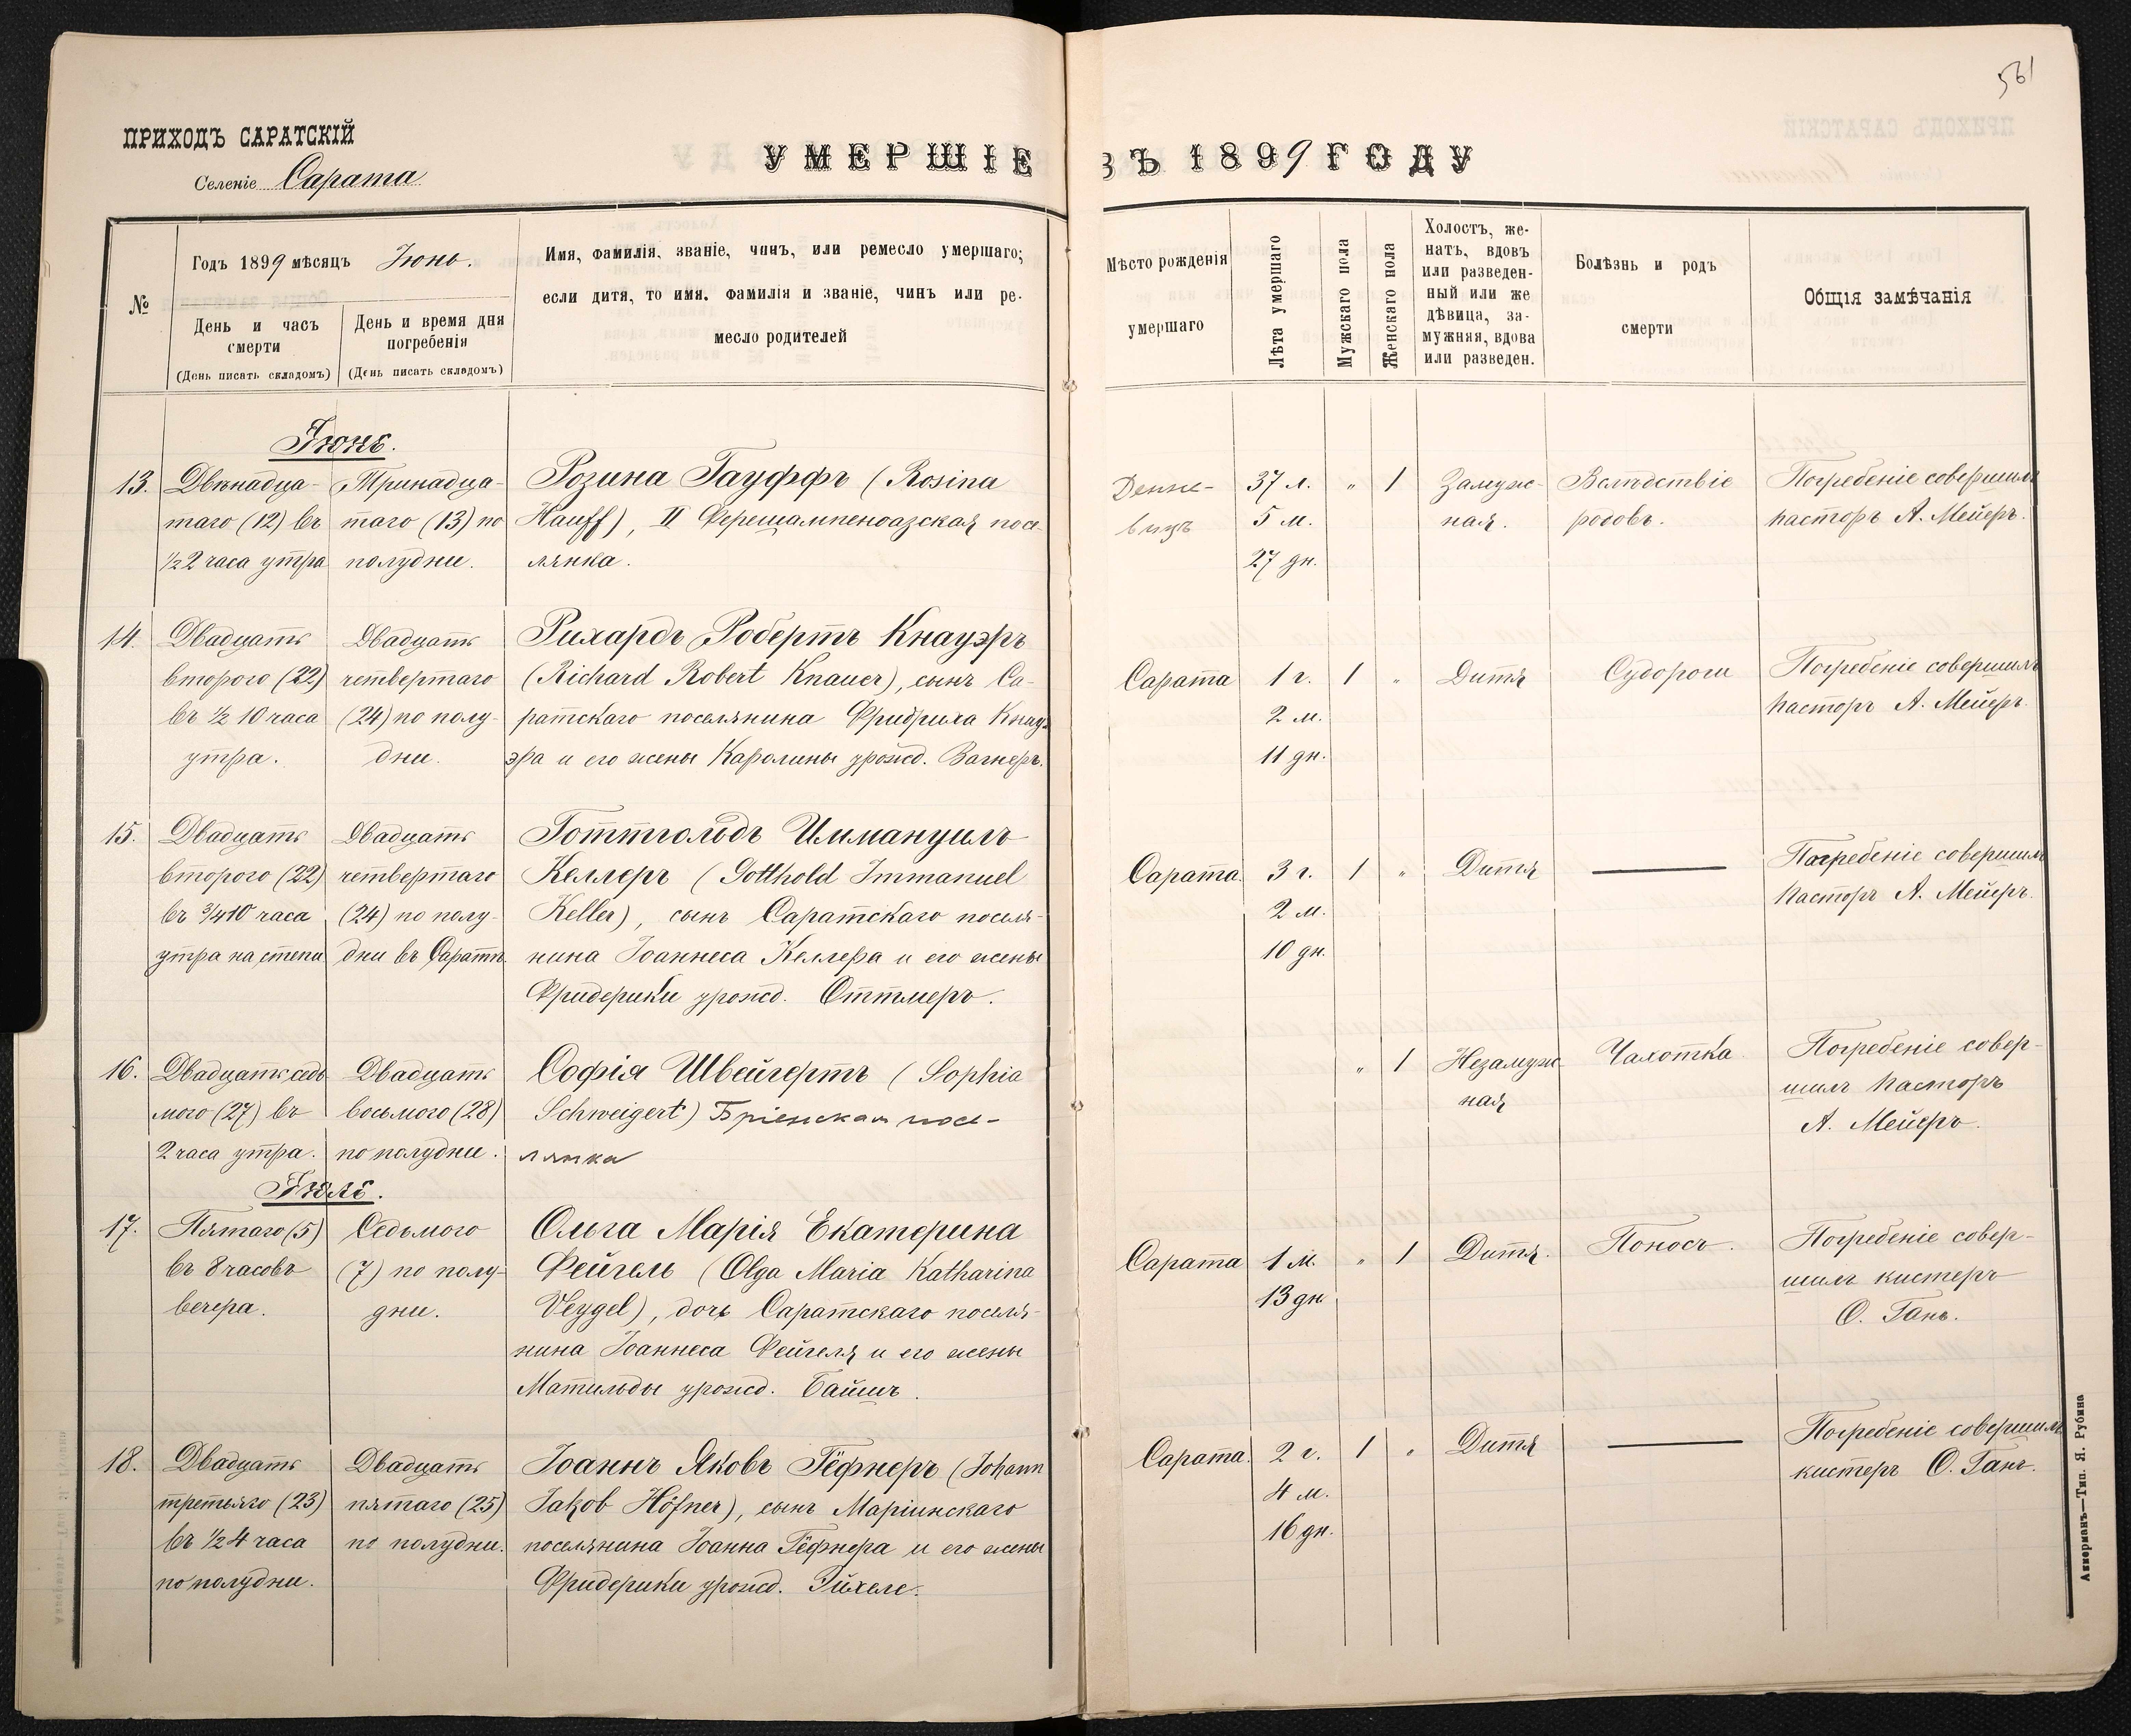 561
ПРИХОДЪ САРАТСКІЙ
Селеніе Сарата
УМЕРШІЕ ВЪ 1899 ГОДУ
№
Годъ 1899 мѣсяцъ Іюнь.
День и часъ
смерти
(День писать складомъ)
День и время дня
погребенія
(День писать складомъ)
Имя, фамилія, званіе, чинъ, или ремесло умершаго;
если дитя, то имя. фамилія и званіе, чинъ или ре-
месло родителей
Мѣсто рожденія
умершаго
Лѣта умершаго
Мужскаго пола
Женскаго пола
Холостъ, же-
натъ, вдовъ
или разведен-
ный или же
дѣвица, за-
мужняя, вдова
или разведен.
Болѣзнь и родъ
смерти
Общія замѣчанія
Іюнь.
13.
Двѣнадца-
таго (12) въ
½ 2 часа утра
Тринадца-
таго (13) по
полудни.
Розина Гауффъ (Rosina
Hauff), II Ферешампеноазская посе-
лянка.
Денне-
вицъ
37 л.
5 м.
27 дн.
" 1
Замуж-
ная.
Вслѣдствіе
родовъ.
Погребеніе совершилъ
пасторъ А. Мейеръ.
14.
Двадцать
второго (22)
въ ½ 10 часа
утра.
Двадцать
четвертаго
(24) по полу-
дни.
Рихардъ Робертъ Кнауэръ
(Richard Robert Knauer), сынъ Са-
ратскаго поселянина Фридриха Кнау-
эра и его жены Каролины урожд. Вагнеръ.
Сарата
1 г.
2 м.
11 дн.
1 "
Дитя
Судороги
Погребеніе совершилъ
пасторъ А. Мейеръ.
15.
Двадцать
второго (22)
въ ¾ 10 часа
утра на степи
Двадцать
четвертаго
(24) по полу-
дни въ Саратѣ.
Готтгольдъ Иммануилъ
Келлеръ (Gotthold Immanuel
Keller), сынъ Саратскаго поселя-
нина Іоаннеса Келлера и его жены
Фридерики урожд. Оттмеръ.
Сарата.
3 г.
2 м.
10 дн.
1 "
Дитя
—
Погребеніе совершилъ
пасторъ А. Мейеръ.
16.
Двадцать седь-
мого (27) въ
2 часа утра.
Двадцать
восьмого (28)
по полудни.
Софія Швейгертъ (Sophia
Schweigert) Бріенская посе-
лянка
" 1
Незамуж-
ная
Чахотка.
Погребеніе совер-
шилъ пасторъ
А. Мейеръ.
Іюль.
17.
Пятаго (5)
въ 8 часовъ
вечера.
Седьмого
(7) по полу-
дни.
Ольга Марія Екатерина
Фейгель (Olga Maria Katharina
Veygel), дочь Саратскаго поселя-
нина Іоаннеса Фейгеля и его жены
Матильды урожд. Байшъ.
Сарата
1 м.
13 дн.
" 1
Дитя.
Поносъ.
Погребеніе совер-
шилъ кистеръ
О. Ганъ.
18.
Двадцать
третьяго (23)
въ ½ 4 часа
по полудни.
Двадцать
пятаго (25)
по полудни.
Іоаннъ Яковъ Гёфнеръ (Johann
Jakob Höfner), сынъ Маріинскаго
поселянина Іоанна Гёфнера и его жены
Фридерики урожд.
Сарата.
2 г.
4 м.
16 дн.
1 "
Дитя
—
Погребеніе совершилъ
кистеръ О. Ганъ.
Аккерманъ—Тип. Я. Рубина